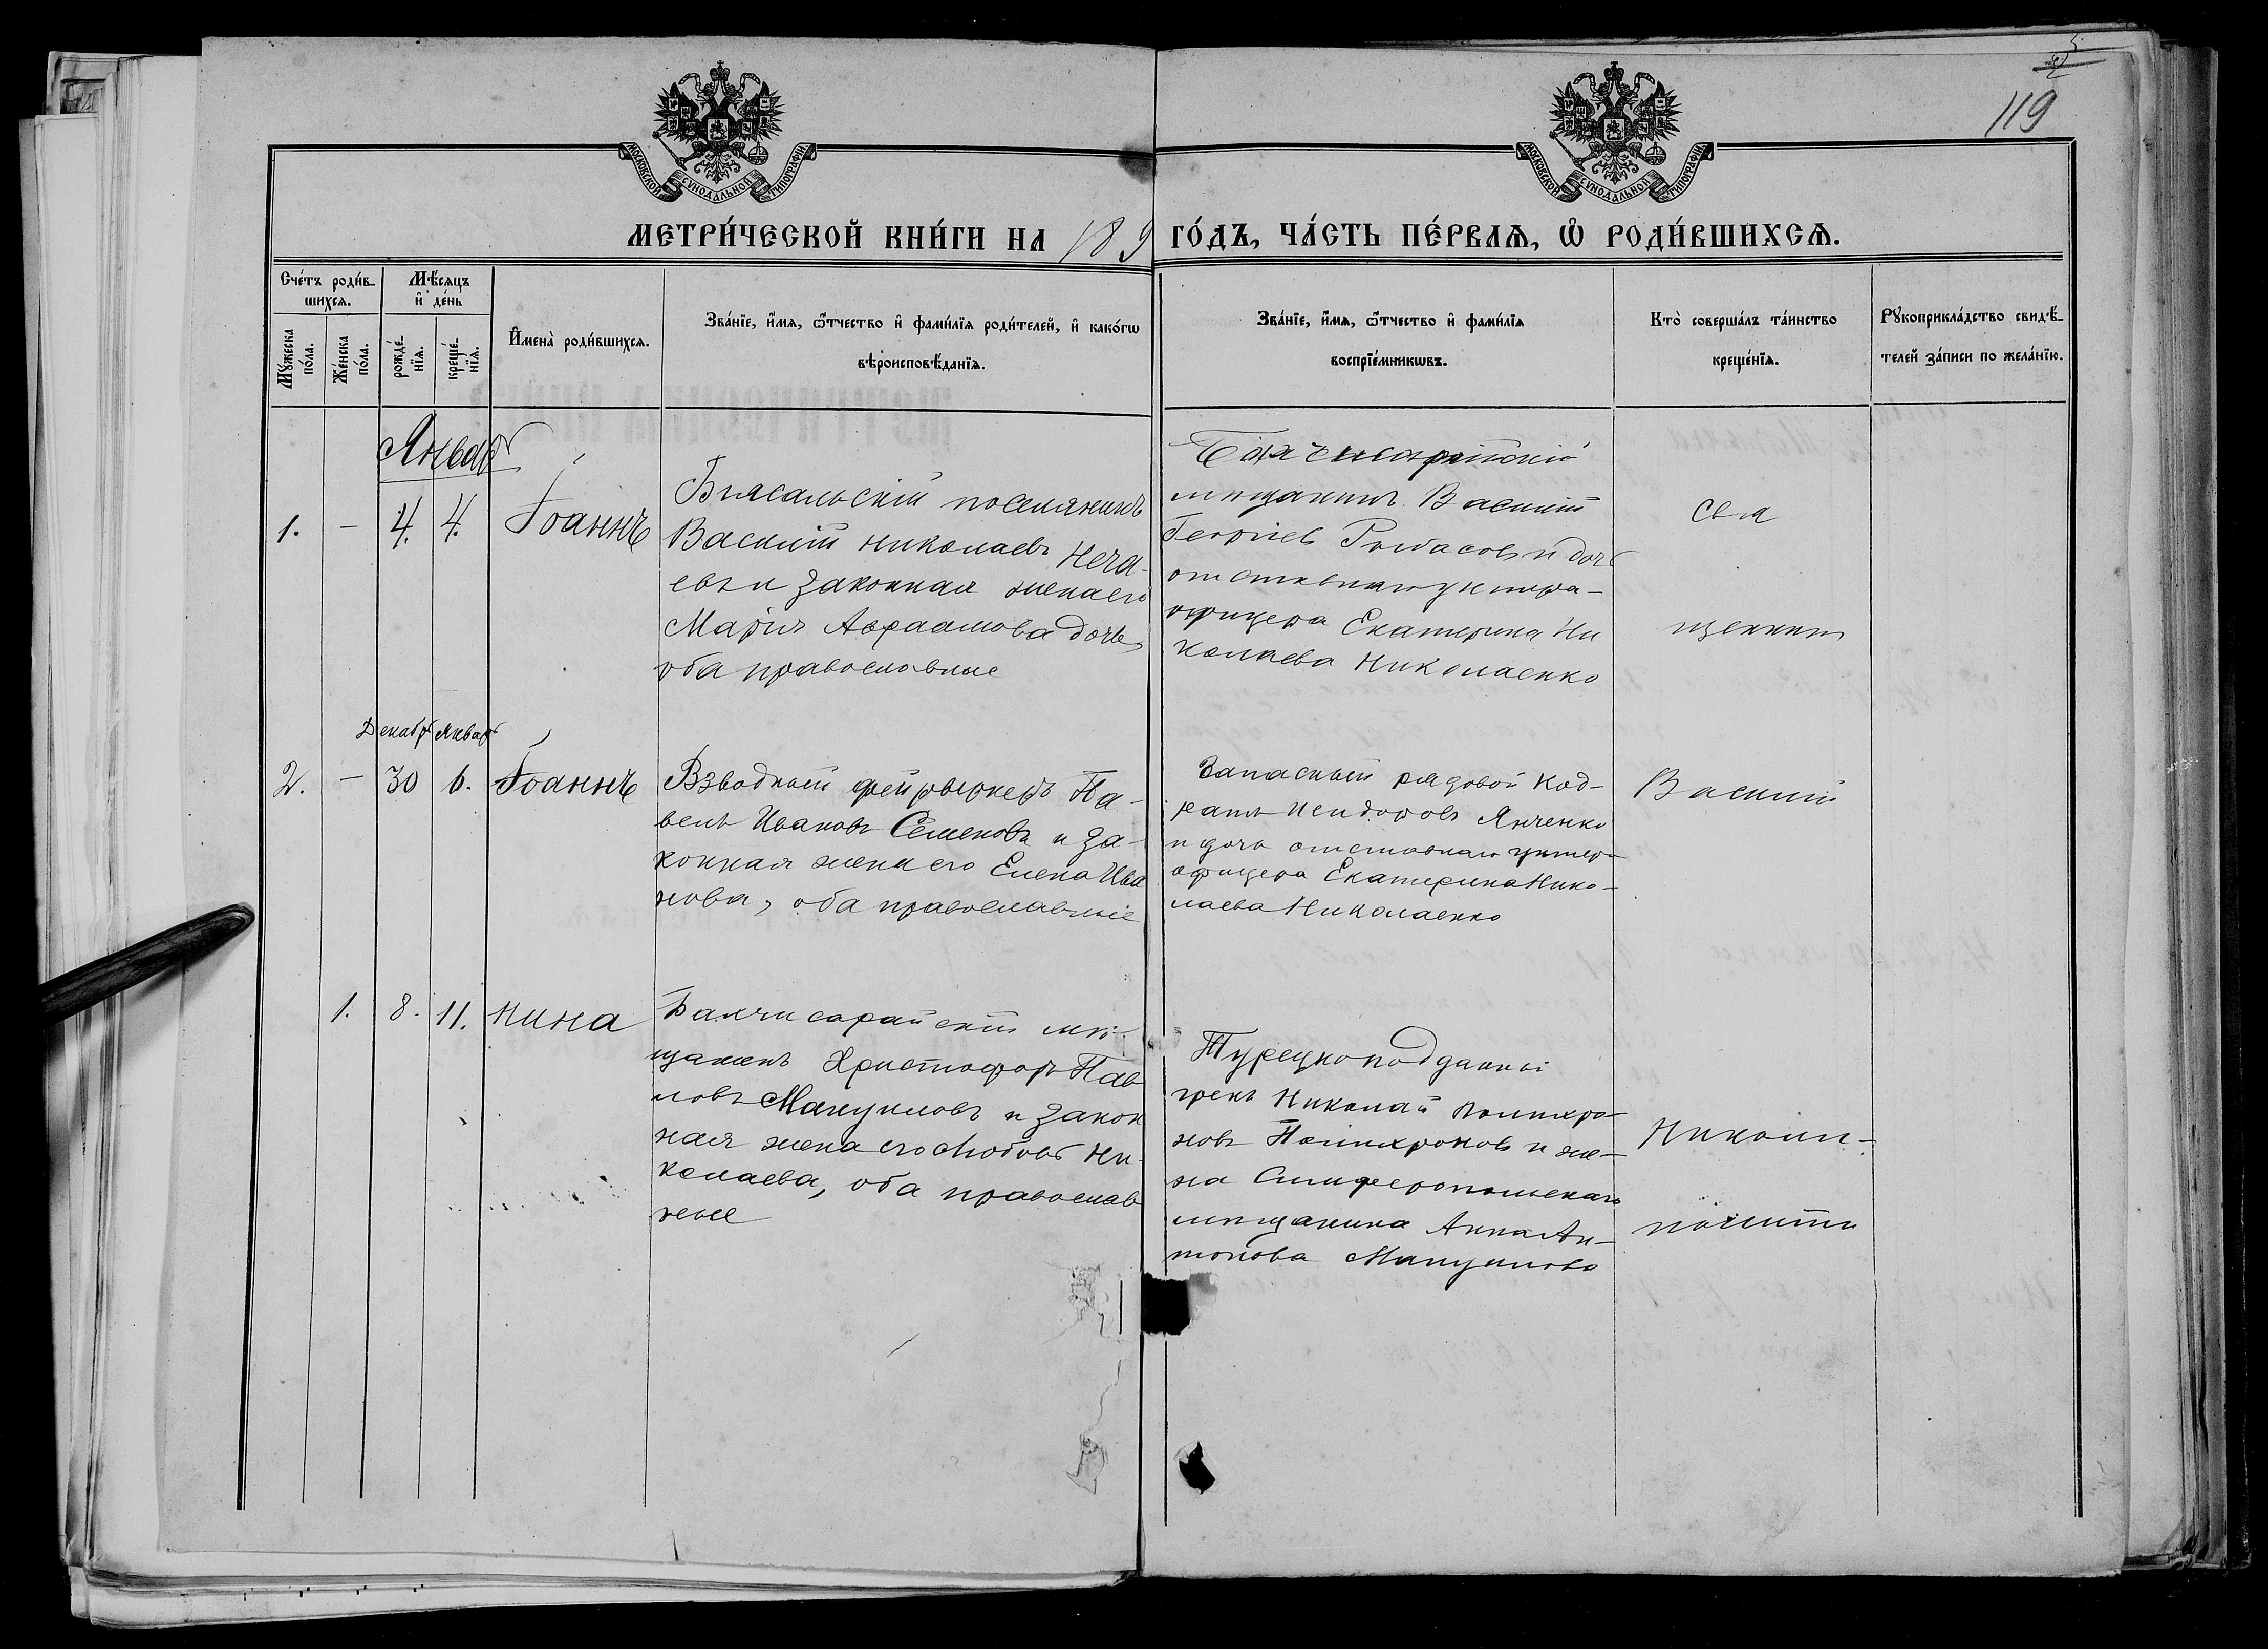 5
119
МОСКОВСКОЙ СѴНОДАЛЬНОЙ ТИПОГРАФІИ
МОСКОВСКОЙ СѴНОДАЛЬНОЙ ТИПОГРАФІИ
МЕТРИ́ЧЕСКОЙ КНИ́ГИ НА 189 ГО́ДЪ, ЧА́СТЬ ПЕ́РВАѦ, Ѡ҆ РОДИ́ВШИХСѦ.
Сче́тъ роди́в-
шихсѧ.
Мꙋ́жеска
по́ла.
Же́нска
по́ла.
Мѣ́сѧцъ
и҆ де́нь
рожде́-
нїѧ.
креще́-
нїѧ.
И҆мена̀ роди́вшихсѧ.
Зва́нїе, и҆́мѧ, ѻ҆́тчество и҆ фами́лїѧ роди́телей, и҆ како́гѡ
вѣроисповѣ́данїѧ.
Зва́нїе, и҆́мѧ, ѻ҆́тчество и҆ фами́лїѧ
воспрїе́мникѡвъ.
Кто̀ соверша́лъ та́инство
креще́нїѧ.
Рꙋкоприкла́дство свидѣ́-
телей за́писи по жела́нїю.
Январь
1. - 4. 4. Іоаннъ
Біясальскій поселянинъ
Василій Николаевъ Неча-
евъ и законная жена его
Марія Авраамова дочь,
оба православные
Бахчисарайскій
мѣщанинъ Василій
Георгіев и дочь
отставнаго унтера-
офицера Екатерина Ни
колаева Николаенко
Свя
щенникъ
Декабрь Январь
2. - 30 6. Іоаннъ
Взводный фейрверкеръ Па-
велъ Ивановъ Семеновъ и за-
конная жена его Елена Ива
нова, оба православные
Запасный рядовой Код-
ратъ Исидоровъ Янченко
и дочь отставнаго унтер-
офицера Екатерина Нико-
лаева Николаенко
Василій
1. 8. 11. Нина
Бахчисарайскій мѣ-
щанинъ Христофоръ Пав
ловъ Мануиловъ и закон
ная жена его Любовь Ни-
колаева, оба православ
ные
Турецкоподданный
грекъ Николай Полихро-
новъ Полихроновъ и же-
на Симферопольскаго
мѣщанина Анна Ан-
тонова Мануилова
Николи-